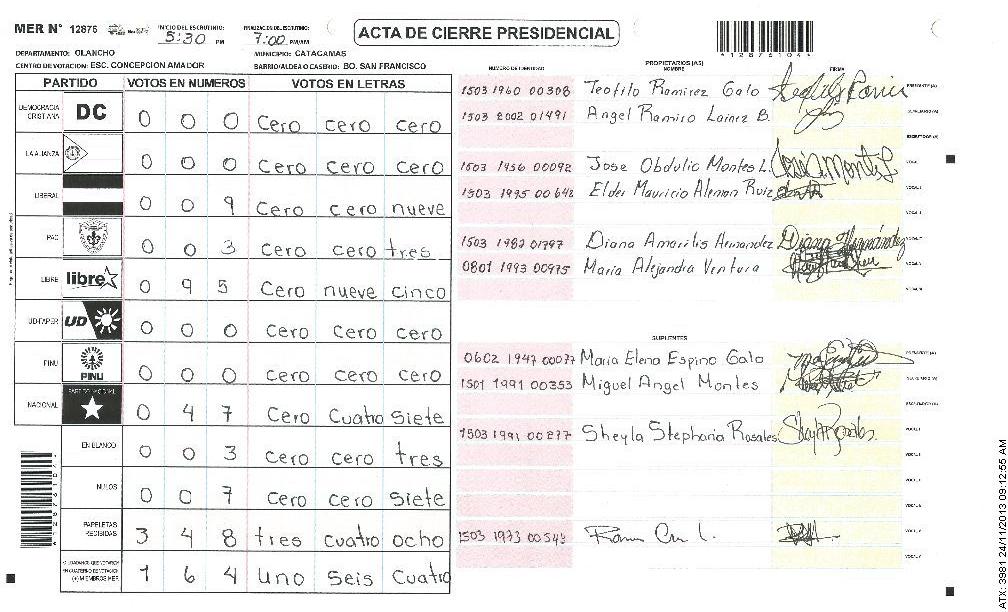 MER N° 12876 INICIO DEL ESCRUTINIO: 5:30 PM FINALIZACION DEL ESCRUTINIO: 7:00 PM/AM
ACTA DE CIERRE PRESIDENCIAL
DEPARTAMENTO: OLANCHO MUNICIPIO: CATACAMAS
CENTRO DE VOTACION: ESC. CONCEPCION AMADOR BARRIO/ALDEA O CASERIO: BO. SAN FRANCISCO
PARTIDO VOTOS EN NUMEROS VOTOS EN LETRAS
DEMOCRACIA CRISTIANA DC 0 0 0 Cero cero cero
LA ALIANZA 0 0 0 Cero Cero Cero
LIBERAL 0 0 9 Cero cero nueve
PAC 0 0 3 Cero Cero tres
LIBRE libre 0 9 5 Cero nueve cinco
UD-FAPER UD 0 0 0 Cero Cero Cero
PINU PINU 0 0 0 Cero Cero Cero
NACIONAL PARTIDO NACIONAL 0 4 7 Cero Cuatro Siete
EN BLANCO 0 0 3 Cero Cero tres
NULOS 0 0 7 Cero cero Siete
PAPELETAS RECIBIDAS 3 4 8 tres cuatro ocho
CIUDADANOS QUE VOTARON EN CUADERNO DE VOTACION (+) MIEMBROS MER 1 6 4 uno seis Cuatro
NUMERO DE IDENTIDAD PROPIETARIOS (AS) NOMBRE FIRMA
1503 1960 00308 Teofilo Ramirez Galo PRESIDENTE (A)
1503 2002 01491 Angel Ramiro Lainez B. SECRETARIO (A)
ESCRUTADOR (A)
1503 1956 00092 Jose Obdulio Montes L. VOCAL I
1503 1995 00642 Elder Mauricio Aleman Ruiz VOCAL II
1503 1982 01797 Diana Amarilis Hernandez Diana Hernández
0801 1993 00975 Maria Alejandra Ventura
SUPLENTES
0602 1947 00077 Maria Elena Espino Galo PRESIDENTE (A)
1501 1991 00353 Miguel Angel Montes SECRETARIO (A)
ESCRUTADOR (A)
1503 1991 00277 Sheyla Stephania Rosales VOCAL I
1503 1973 00543
ATX: 3981 24/11/2013 09:12:55 AM